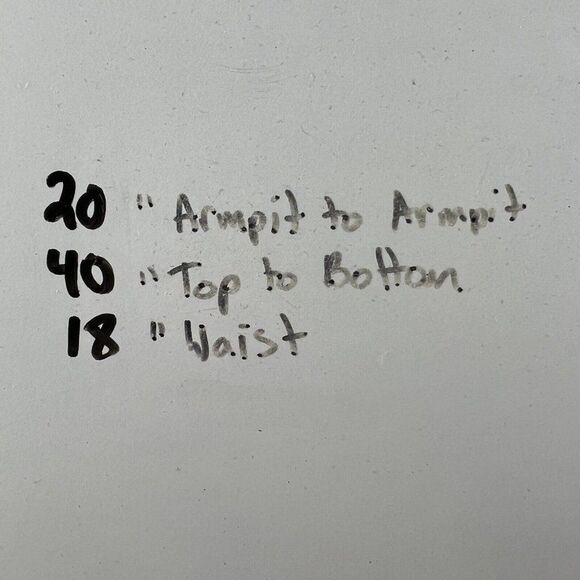 20 " Armpit to Armpit
40 " Top to Bottom
18 " Waist